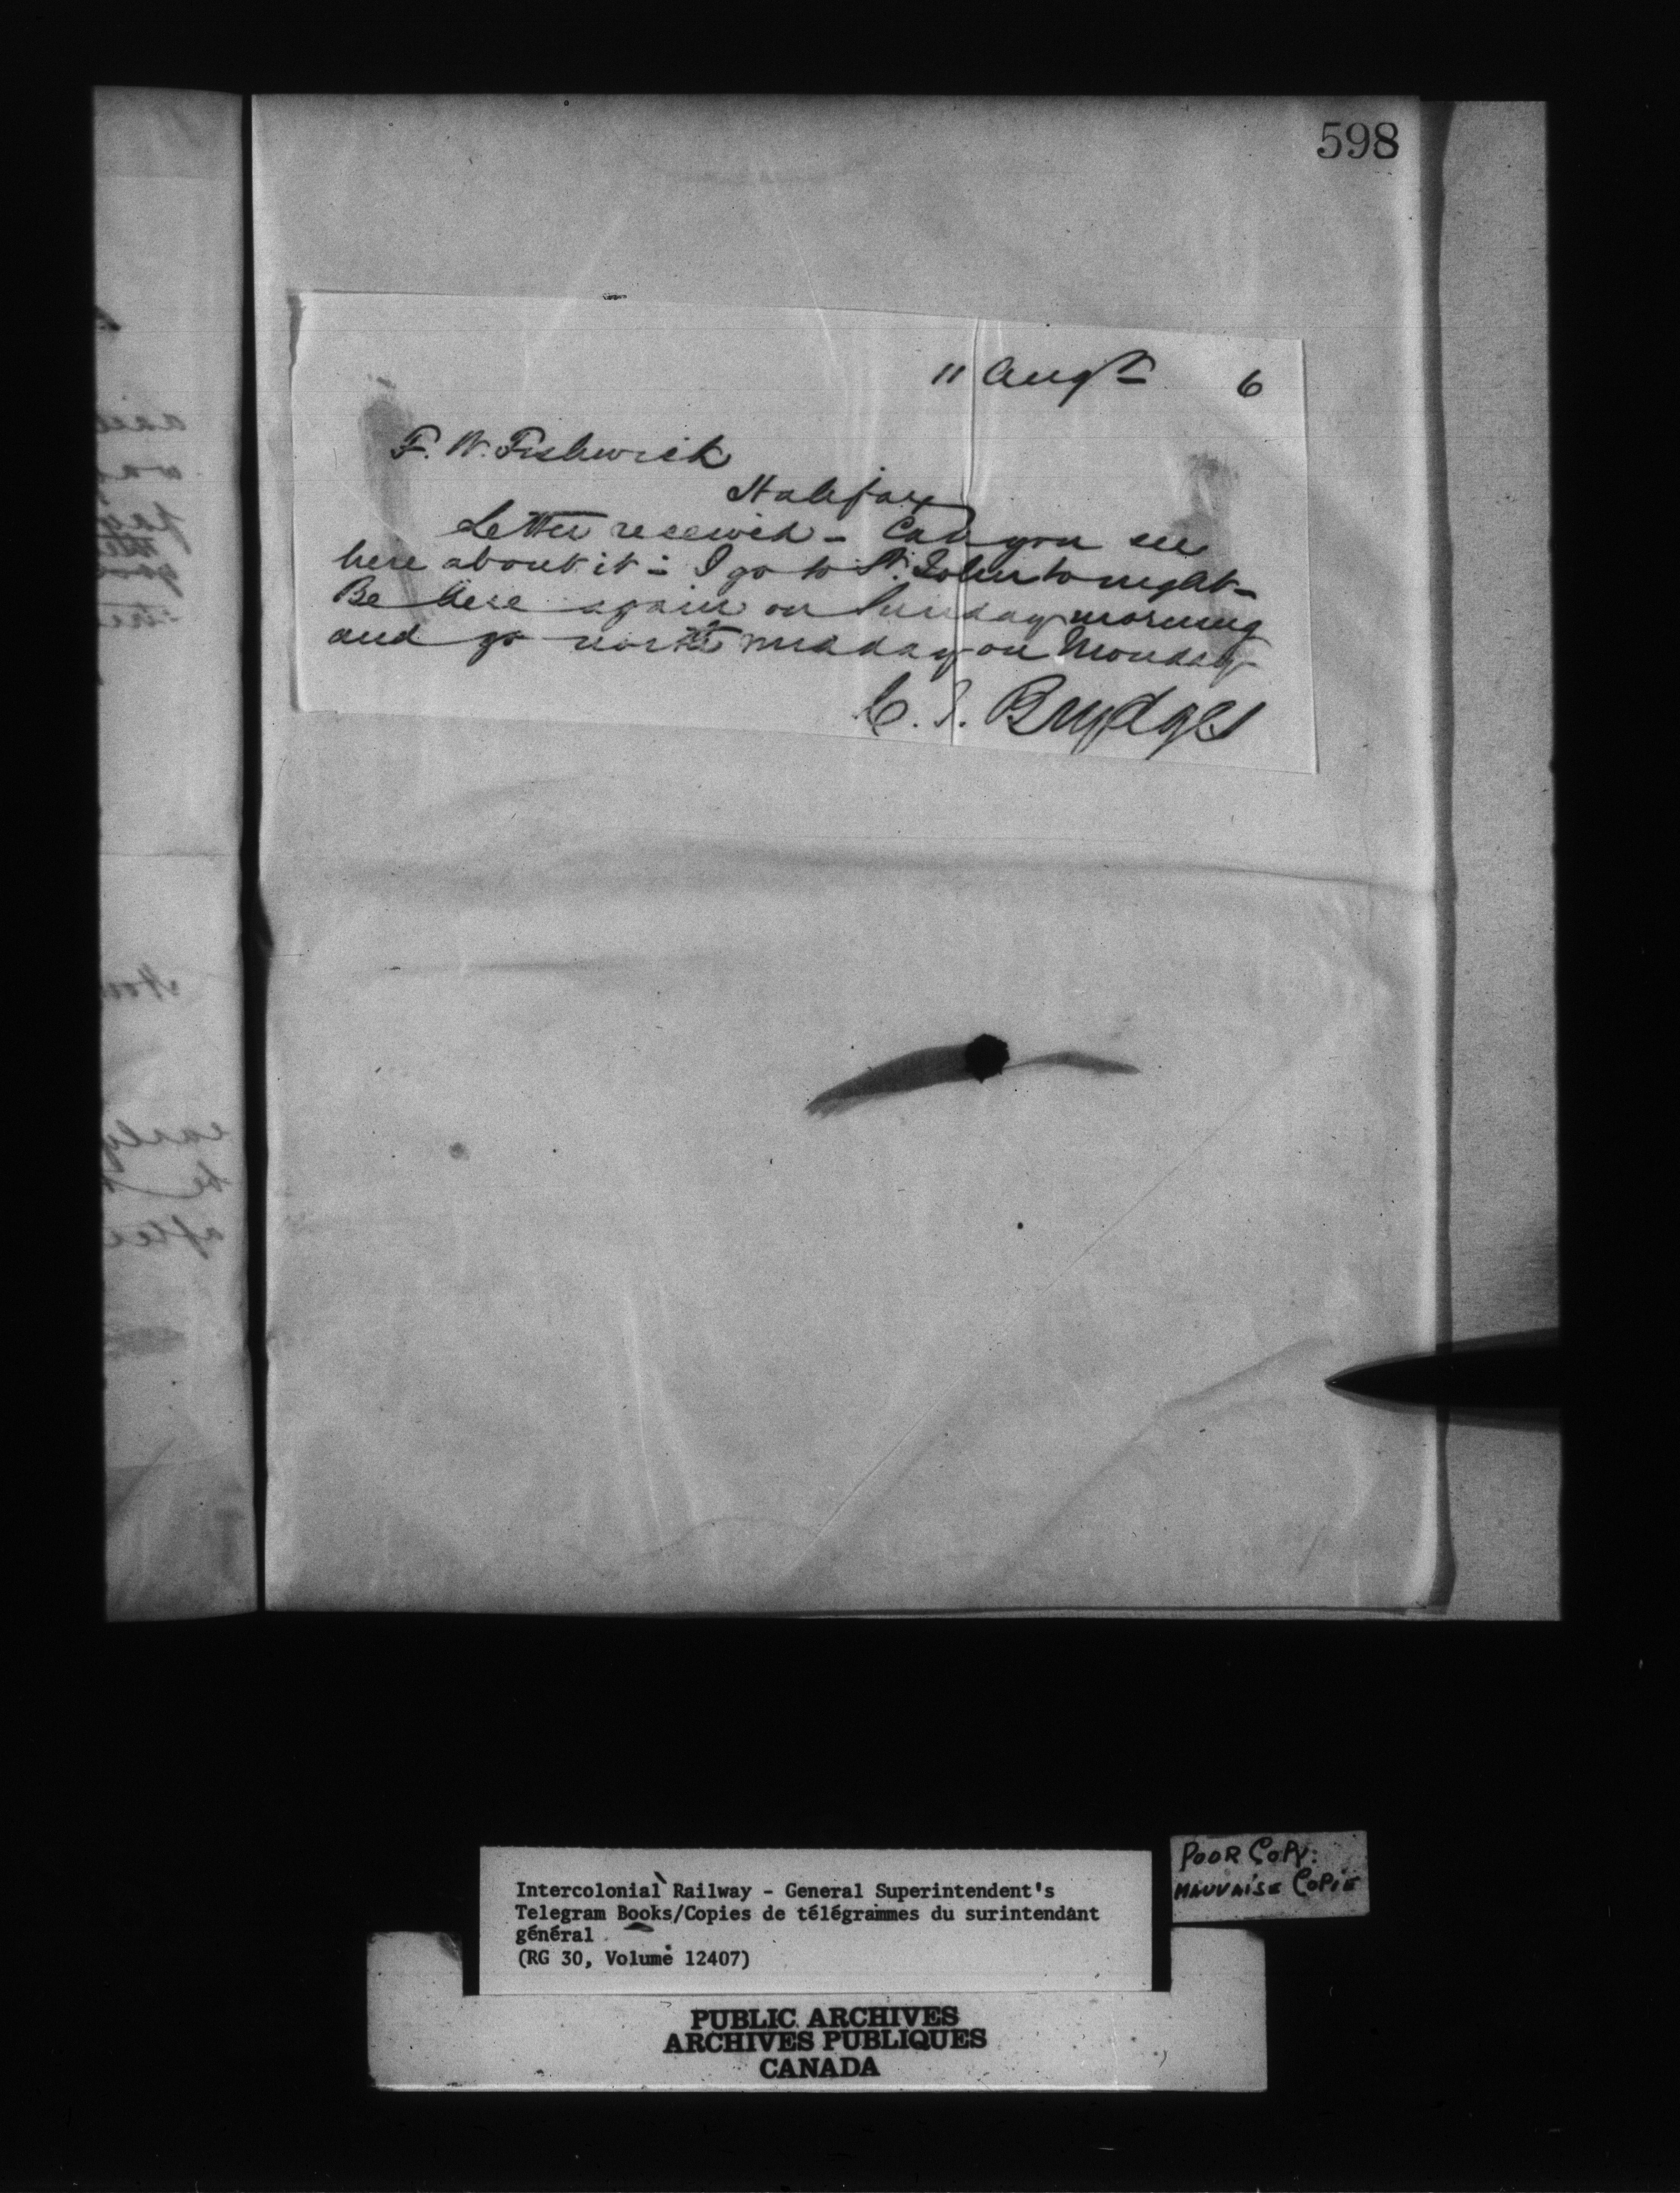 598
11 Augt 6
F. W. Fishwick
Halifax
Letter received - Can you see
here about it - I go to St. John tonight -
Be here again on Sunday morning
and go north midday on Monday -
C. J. Brydges
Intercolonial Railway - General Superintendent's
Telegram Books/Copies de télégrammes du surintendant
général
(RG 30, Volume 12407)
POOR COPY:
MAUVAISE COPIE
PUBLIC ARCHIVES
ARCHIVES PUBLIQUES
CANADA